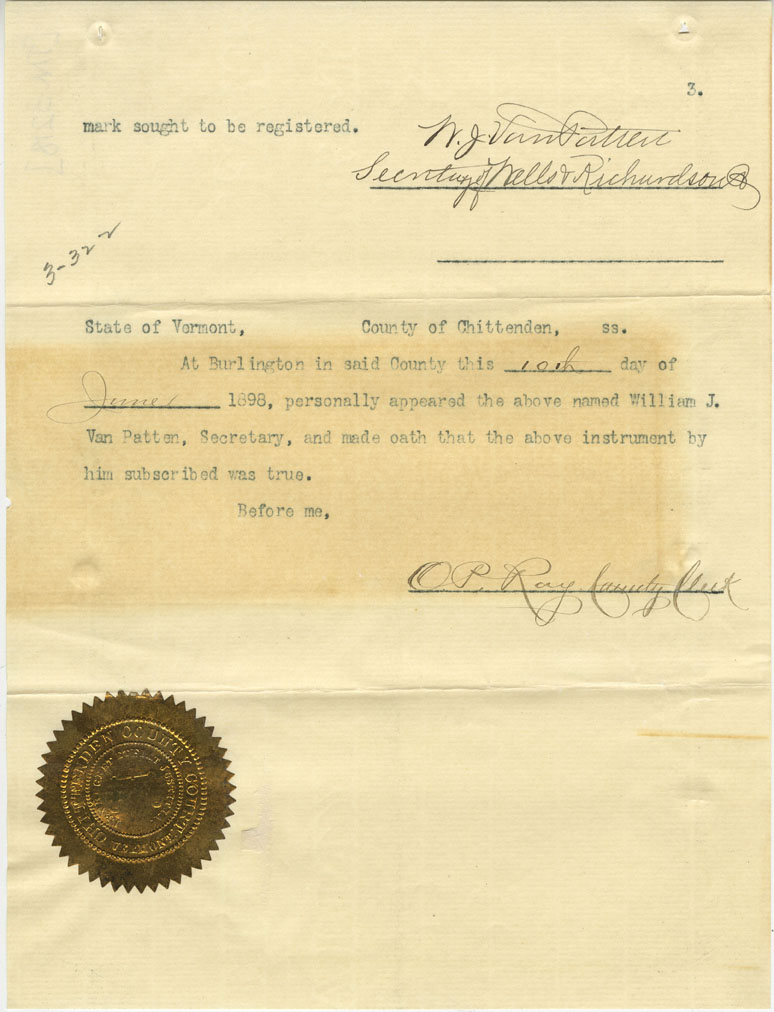 3.
mark sought to be registered.
W. J. Van Patten
Secretary of Wells & Richardson Co
3-322
State of Vermont, County of Chittenden, ss.
At Burlington in said County this 10th day of
June 1898, personally appeared the above named William J.
Van Patten, Secretary, and made oath that the above instrument by
him subscribed was true.
Before me,
O P. Ray County Clerk
CHITTENDEN COUNTY COURT